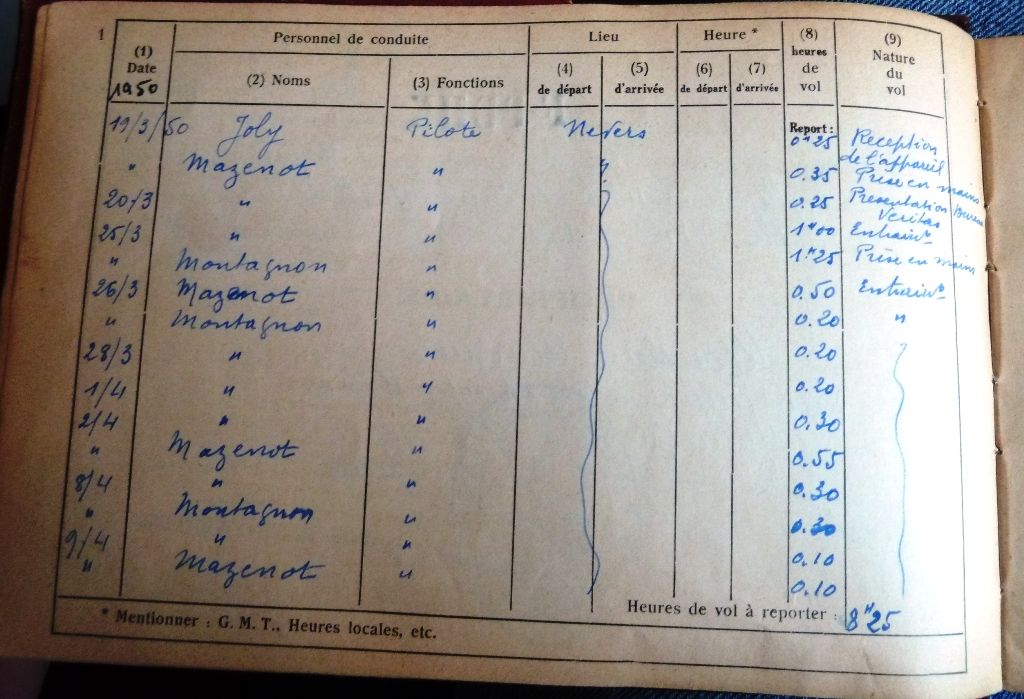 1
(1) Date 1950 Personnel de conduite Lieu Heure * (8) heures de vol (9) Nature du vol
(2) Noms (3) Fonctions (4) de départ (5) d'arrivée (6) de départ (7) d'arrivée
Report :
19/3/50 Joly Pilote Nevers 0H25 Réception de l'appareil
" Mazenot " " 0.35 Prise en mains
20/3 " " 0.25 Présentation Bureau Veritas
25/3 " " 1H00 Entraint
" Montagnon " 1H25 Prise en mains
26/3 Mazenot " 0.50 Entraint
" Montagnon " 0.20 "
28/3 " " 0.20
1/4 " " 0.20
2/4 " " 0.30
" Mazenot " 0.55
8/4 " " 0.30
" Montagnon " 0.30
9/4 " " 0.10
" Mazenot " 0.10
Heures de vol à reporter : 8H25
* Mentionner : G. M. T., Heures locales, etc.